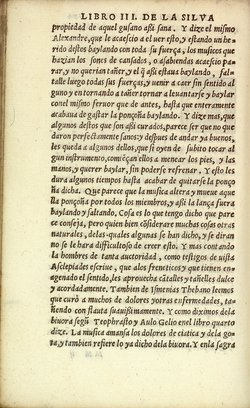 LIBRO III. DE LA SILVA
propiedad de aquel gusano assi sana. Y dize el mismo
Alexandre, que le acaescio a el uer esto, y estando un he
rido destos baylando con toda su fuerça, los musicos que
hazian los sones de cansados, o absiendas acaescio pa
rar, y no querian tañer, y el assi estaua baylando, fal-
talle luego todas sus fuerças, y uenir a caer sin sentido al
guno y entornando a tañer tornar a leuantarse y baylar
con el mismo feruor que de antes, hasta que enteramente
acabaua de gastar la ponçoña baylando. Y dize mas, que
algunos destos que son assi curados, parece ser que no que
daron perfectamente sanos y despues de andar ya buenos,
les queda a algunos dellos, que si oyen de subito tocar al
gun instrumento, comiençan ellos a menear los pies, y las
manos, y querer baylar, sin poderse refrenar. Y esto les
dura algunos tiempos hasta acabar de quitarse la ponço
ña dicha. Que parece que la musica altera y mueue aque
lla ponçoña por todos los miembros, y assi la lança fuera
baylando y saltando. Cosa es lo que tengo dicho que pare
ce conseja, pero quien bien considerare muchas cosas otras
naturales, de las quales algunas yo tengo dichas, y se diran
no se le hara difficultoso de creer esto. Y mas contando
la hombres de tanta auctoridad, como testigos de uista
Asclepiades escriue, que alos freneticos y que tienen en-
agenado el sentido, les aprouecha cätalles y tañelles dulce
y acordadamente. Tambien de Ismenias Thebano leemos
que curò a muchos de dolores yotras enfermedades, tañ-
endo con flauta suauissimamente. Y como diximos dela
biuora segun Teophrasto y Aulo Gelio enel libro quarto
dize. La musica amansa los dolores de ciatica y dela go-
ta, y tambien refiere lo ya dicho dela biuora. Y enla sagra